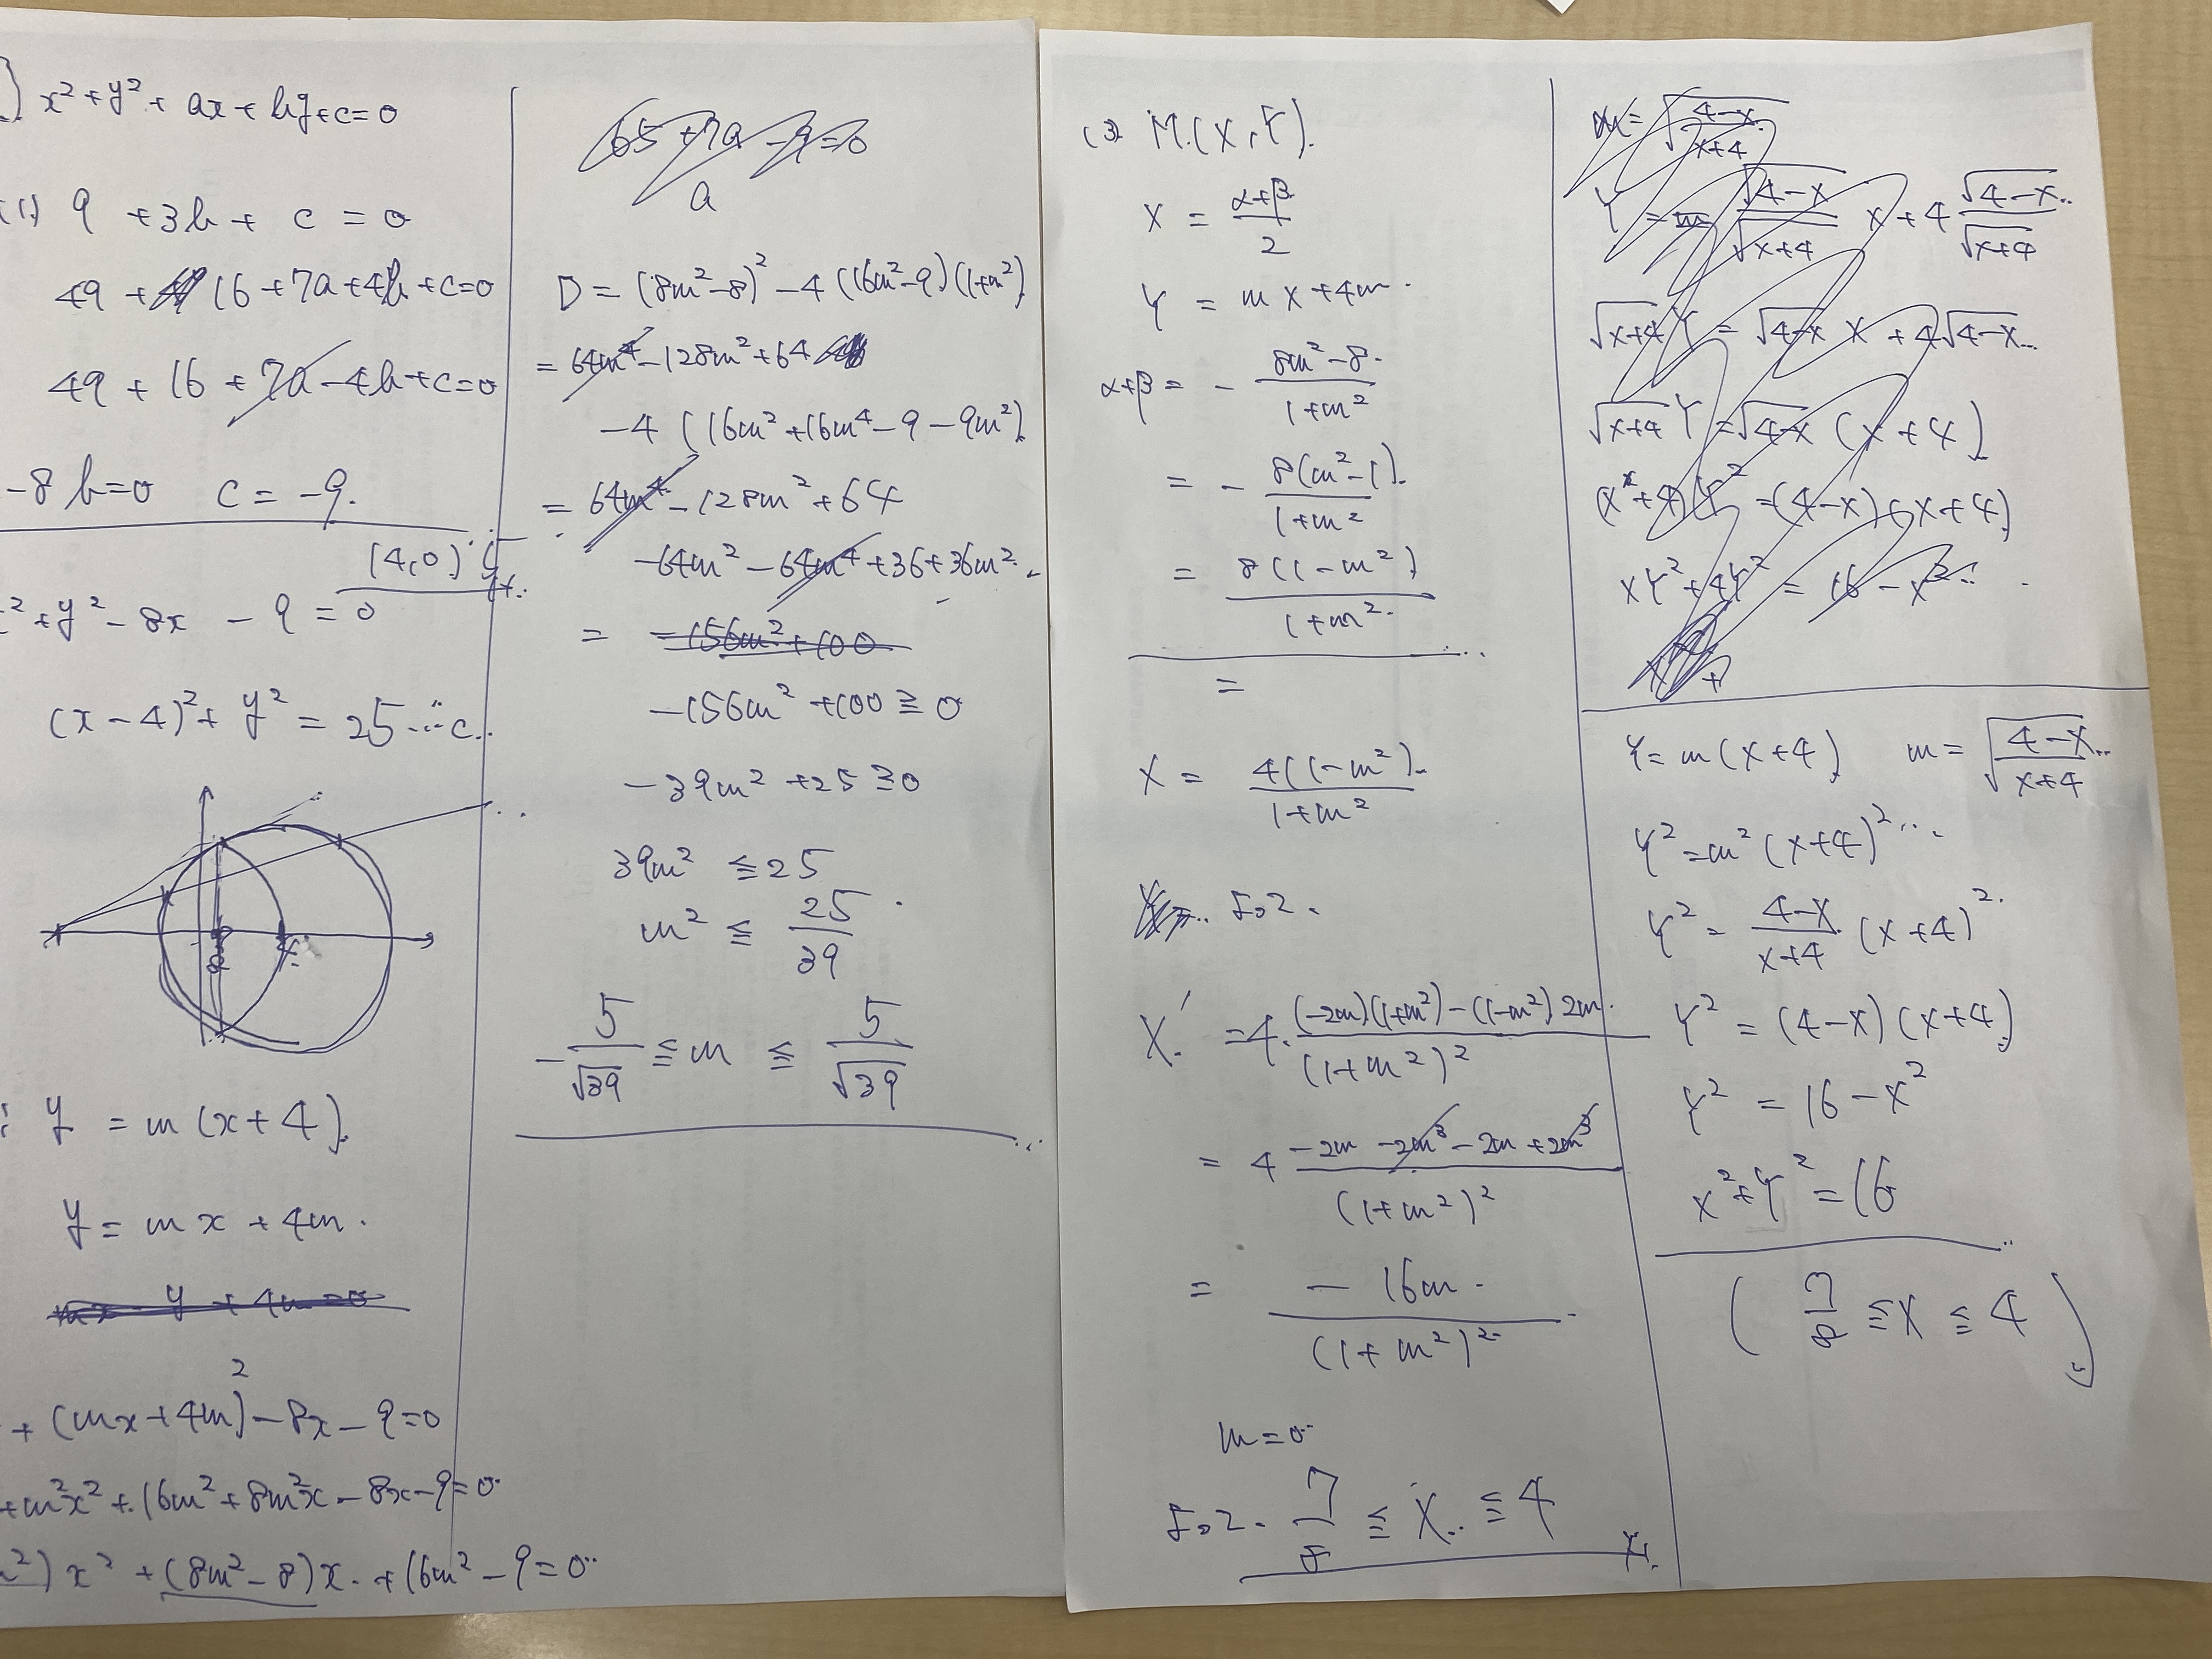 x²+y²+ax+by+c=0
(1) 9 +3b+ c = 0
49 + 16 +7a+4b+c=0
49 + 16 + 7a-4b+c=0
-8b=0 c = -9.
(4,0)
²+y²-8x -9=0
(x-4)²+y²=25
: y = m(x+4).
y = mx+4m.
mx - y + 4m=0
+(mx+4m)²-8x-9=0
+m²x²+16m²+8m²x-8x-9=0
²)x²+(8m²-8)x+16m²-9=0
65+7a-9=0
a
D=(8m²-8)²-4(16m²-9)(1+m²)
= 64m⁴-128m²+64
-4(16m²+16m⁴-9-9m²)
= 64m⁴-128m²+64
-64m²-64m⁴+36+36m²
= -156m²+100
-156m²+100≧0
-39m²+25≧0
39m² ≦25
m² ≦ 25/39
-5/√39 ≦ m ≦ 5/√39
(3) M(X,Y).
X = α+β/2
Y = mX+4m.
α+β = - 8m²-8/1+m²
= - 8(m²-1)/1+m²
= 8(1-m²)/1+m²
=
X = 4(1-m²)/1+m²
よって.
X' =4·(-2m)(1+m²)-(1-m²)2m/(1+m²)²
= 4 -2m-2m³-2m+2m³/(1+m²)²
= -16m/(1+m²)²
m=0
よって. 7/8 ≦ X ≦ 4
m=√4-X/X+4
Y = m √4-X/√X+4 X+4 √4-X/√X+4
√X+4 Y = √4-X X + 4√4-X
√X+4 Y = √4-X (X+4)
(X+4)Y²=(4-X)(X+4)
XY²+4Y² = 16-X²
Y=m(X+4) m=√4-X/X+4
Y²=m²(X+4)²
Y²= 4-X/X+4 (X+4)²
Y² = (4-X)(X+4)
Y² = 16-X²
X²+Y²=16
( 7/8 ≦X≦4 )